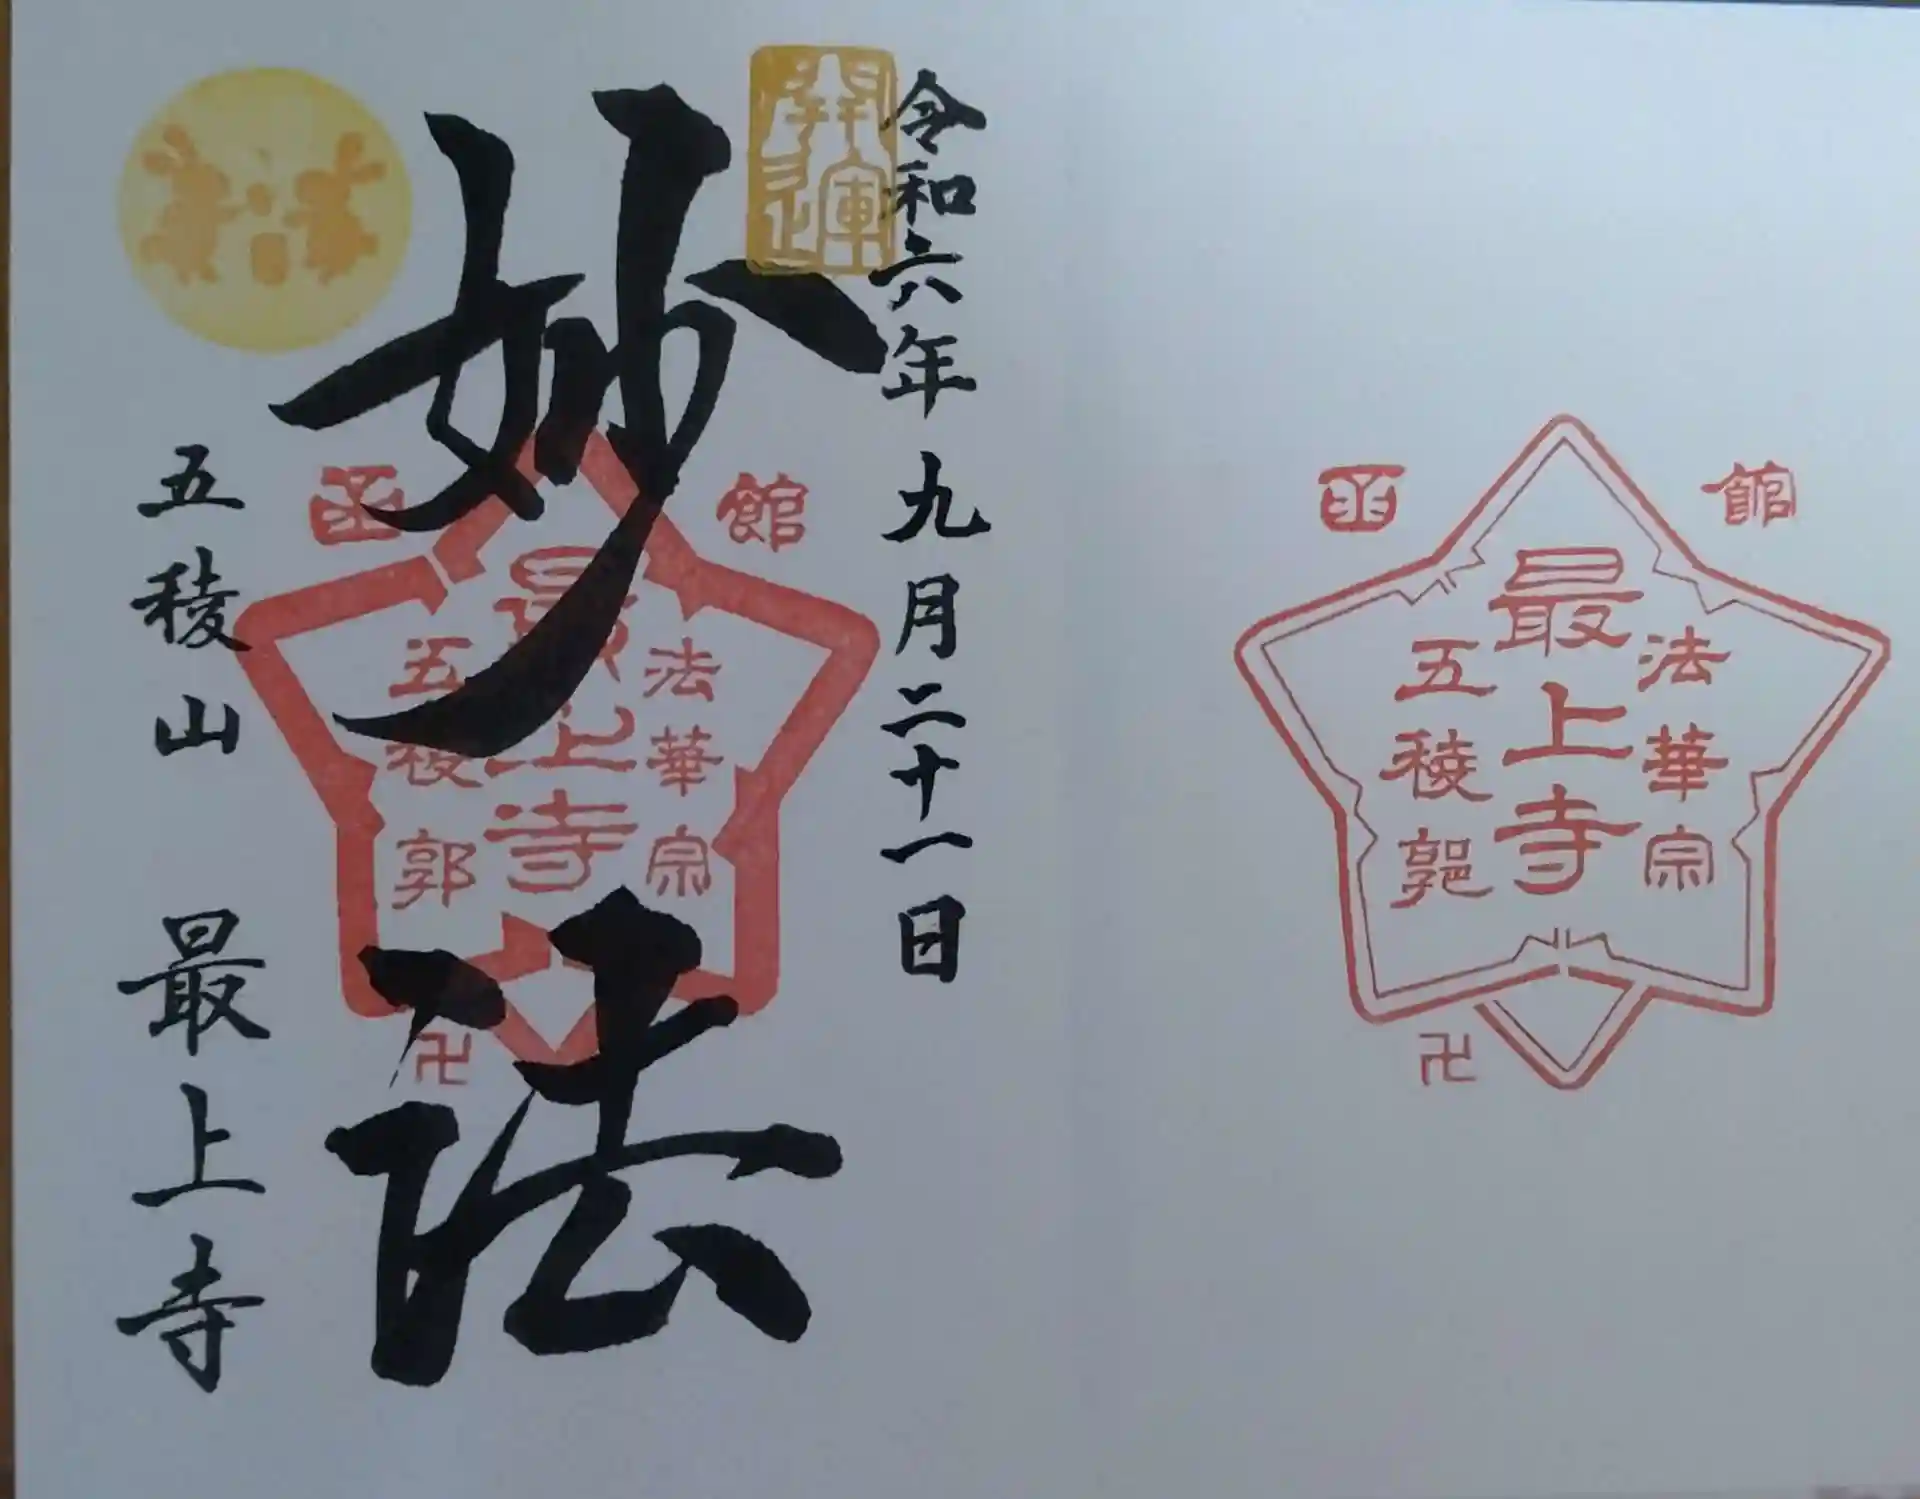 函 館
法華宗
最上寺
五稜郭
卍
開運
令和六年九月二十一日
妙法
函 館
法華宗
最上寺
五稜郭
卍
五稜山 最上寺